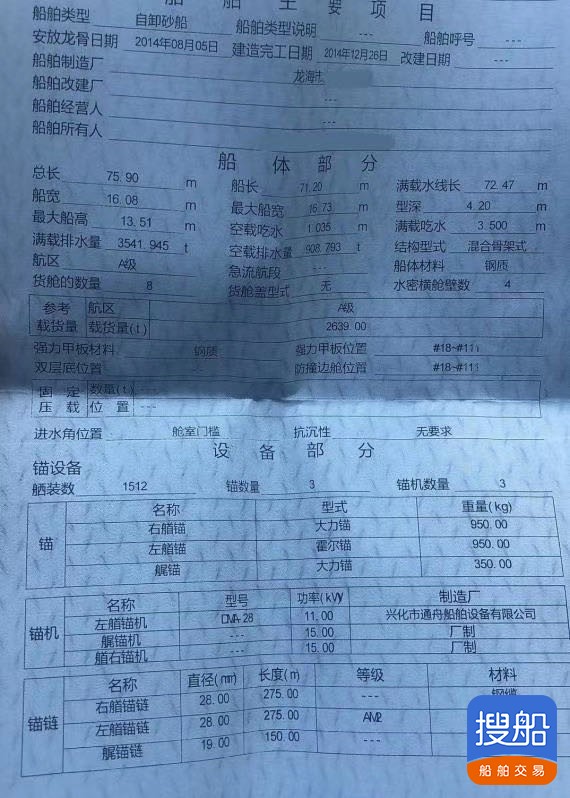 船舶主要项目
船舶类型 自卸砂船 船舶类型说明 --- 船舶呼号 ---
安放龙骨日期 2014年08月05日 建造完工日期 2014年12月26日 改建日期 ---
船舶制造厂 龙海
船舶改建厂 ---
船舶经营人 ---
船舶所有人
船体部分
总长 75.90 m 船长 71.20 m 满载水线长 72.47 m
船宽 16.08 m 最大船宽 16.73 m 型深 4.20 m
最大船高 13.51 m 空载吃水 1.035 m 满载吃水 3.500 m
满载排水量 3541.945 t 空载排水量 908.793 t 结构型式 混合骨架式
航区 A级 急流航段 --- 船体材料 钢质
货舱的数量 8 货舱盖型式 无 水密横舱壁数 4
参考 航区 A级
载货量 载货量(t) 2639.00
强力甲板材料 钢质 强力甲板位置 #18~#111
双层底位置 --- 防撞边舱位置 #18~#111
固定 数量(t) ---
压载 位置 ---
进水角位置 舱室门槛 抗沉性 无要求
设备部分
锚设备
舾装数 1512 锚数量 3 锚机数量 3
锚 名称 型式 重量(kg)
右艏锚 大力锚 950.00
左艏锚 霍尔锚 950.00
艉锚 大力锚 350.00
锚机 名称 型号 功率(kW) 制造厂
左艏锚机 CMA-28 11.00 兴化市通舟船舶设备有限公司
艉锚机 --- 15.00 厂制
艏右锚机 --- 15.00 厂制
锚链 名称 直径(mm) 长度(m) 等级 材料
右艏锚链 28.00 275.00 --- 钢缆
左艏锚链 28.00 275.00 AM2
艉锚链 19.00 150.00 ---
搜船
船舶交易